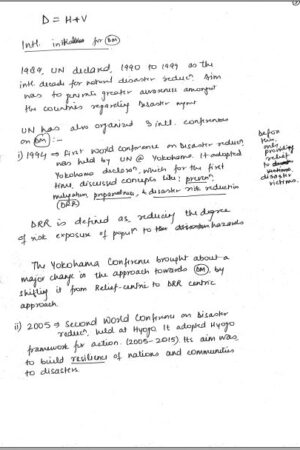 D = H+V
Intl. initiatives for DM
1989, UN declared, 1990 to 1999 as the
intl. decade for natural disaster reducn. Aim
was to generate greater awareness amongst
the countries regarding Disaster mgmt
UN has also organized 3 intl. conferences
on DM :-
i) 1994 → First World Conference on Disaster reducn
was held by UN @ Yokohama. It adopted
Yokohama declarn, which for the first
time, discussed concepts like: prevn,
mitigation, preparedness, & disaster risk reduction
(DRR)
before
this only
providing
relief
to
disaster
victims.
DRR is defined as, reducing the degree
of risk exposure of populn to hazards
The Yokohama Conference brought about a
major change in the approach towards DM, by
shifting it from Relief-centric to DRR centric
approach.
ii) 2005 → Second World Conference on Disaster
reducn, held at Hyogo. It adopted Hyogo
framework for action. (2005-2015). Its aim was
to build resilience of nations and communities
to disasters.